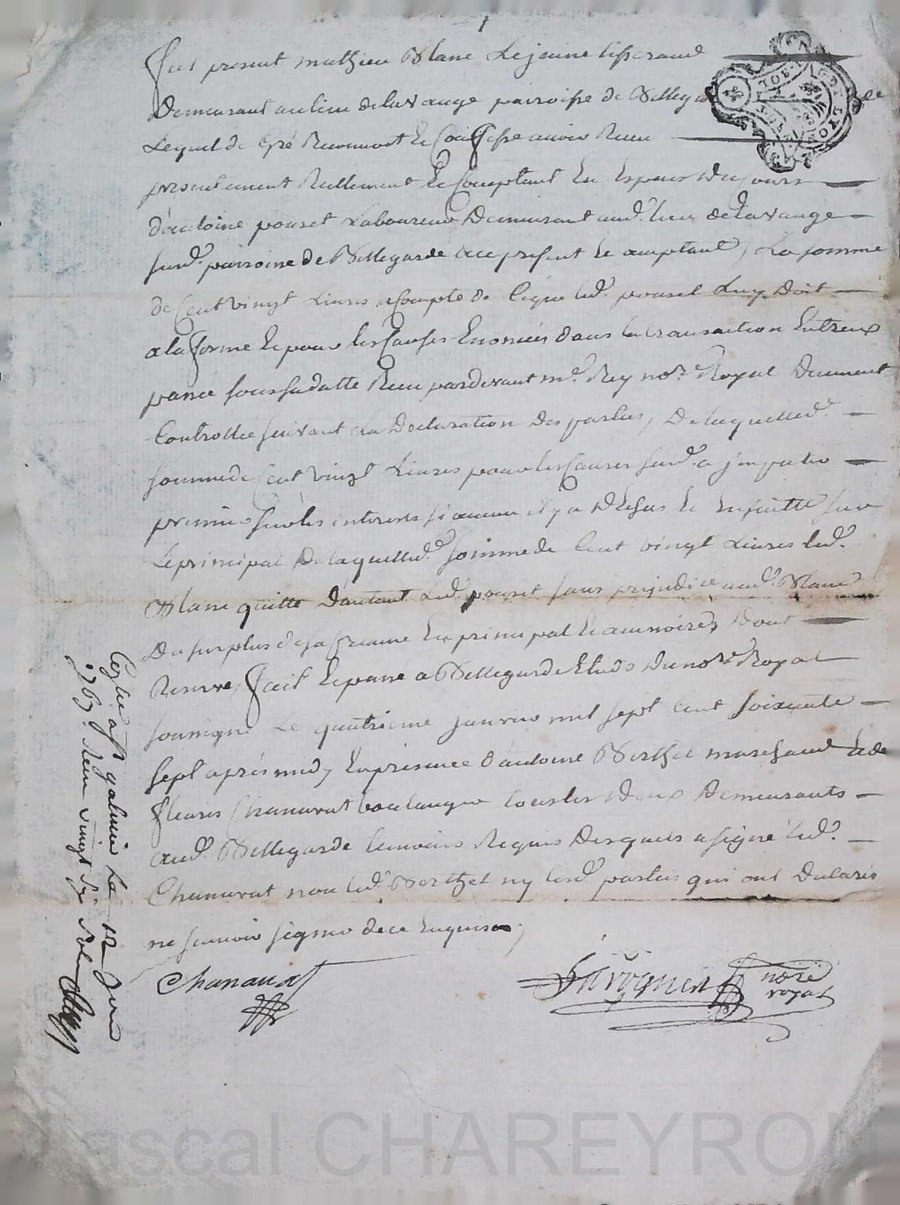 1
fut present mathieu Blanc Lejeune tisserand
Demeurant au lieu delavange parroisse de Bellegarde
Lequel de Gré Reconnoit Et Confesse avoir Receu
presentement Reellement Et Comptant En Especes Du Cours
d'antoine pouset Laboureur Demeurant aud.t lieu delavange
sud.t parroisse de Bellegarde Icy present Et acceptant, La somme
de Cent vingt Livres acompte de Ceque led.t pouset Luy Doit
ala forme Et pour les Causes Enoncées dans la transaction Entreux
passée sous sa datte Receu pardevant m.e Rey no.re Royal Duement
Controllée suivant la Declaration Des parties, De laquelle d.e
somme de Cent vingt Livres pour les Causes sud.
premier sur les interests si aucun il y a Et Ensuitte sur
Le principal De laquelle d.e somme de Cent vingt Livres led.t
Blanc quitte D'autant led.t pouset sans prejudice aud.t Blanc
Du surplus desa En principal Et accessoires Dont
Reserve, fait Et passé a Bellegarde Etude Du no.re Royal
soussigné Le quatrieme janvier mil sept cent soixante
sept après midy En presence d'antoine Berthet marchand Et de
fleury Chanavat boulanger tous les Deux Demeurants
aud.t Bellegarde temoins Requis Desquels a signé led.t
Chanavat non led.t Berthet ny lesd.t parties qui ont Declaré
ne sçavoir signer de ce Enquis
Chanavat
no.re
royal
galmier Le 12 Janv
1767. Receu vingt six sols
Pascal CHAREYRON